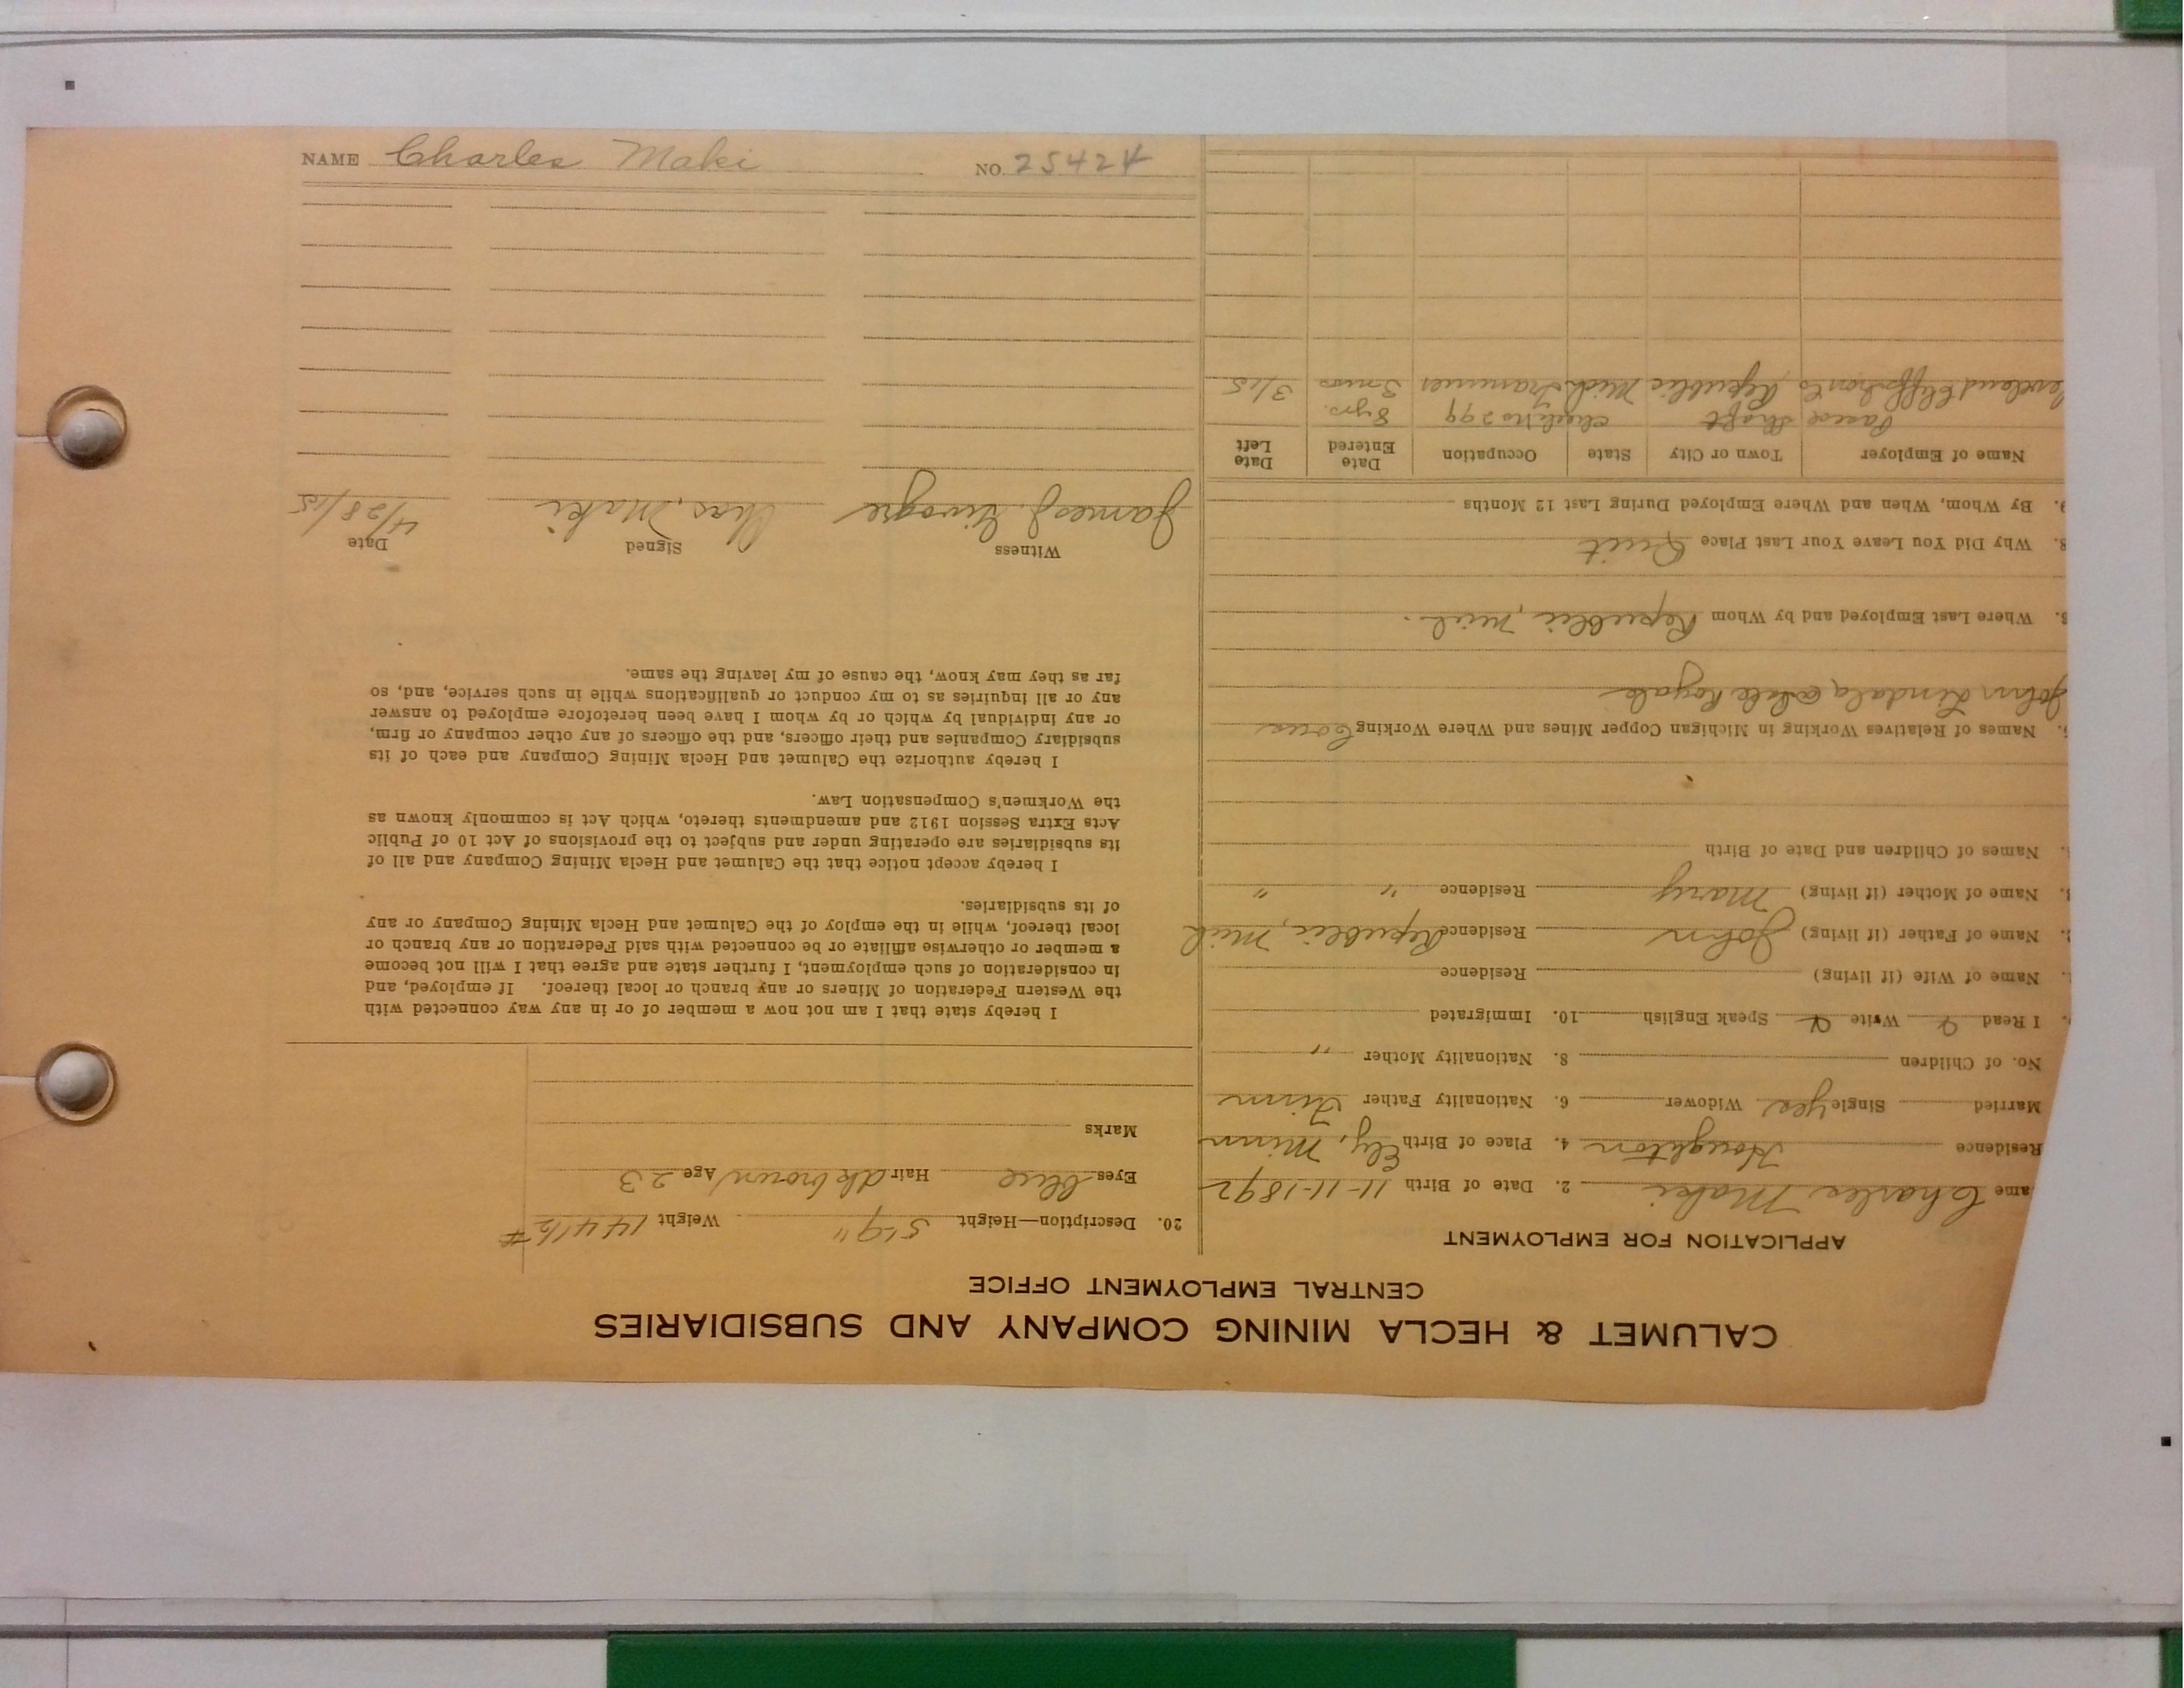 NAME Charles Maki NO. 25424
CALUMET & HECLA MINING COMPANY AND SUBSIDIARIES
CENTRAL EMPLOYMENT OFFICE
APPLICATION FOR EMPLOYMENT
ame Charles Maki 2. Date of Birth 11-11-1892
Residence Houghton 4. Place of Birth Ely, Minn
Married Single Yes Widower 6. Nationality Father Finn
No. of Children 8. Nationality Mother "
I Read Write Speak English 10. Immigrated
Name of Wife (if living) Residence
Name of Father (if living) John Residence Republic, Mich
Name of Mother (if living) Mary Residence " "
Names of Children and Date of Birth
Names of Relatives Working in Michigan Copper Mines and Where Working Cous
John Lindala, Isle Royale
Where Last Employed and by Whom Republic, Mich.
8. Why Did You Leave Your Last Place Quit
9. By Whom, When and Where Employed During Last 12 Months
Name of Employer Town or City State Occupation Date Entered Date Left
Shaft check No 299 8 yrs.
leveland Cliffs Republic Mich Trammer 3 mos 3/15
20. Description—Height 5-9" Weight 144 1/2 #
Eyes blue Hair dk brown Age 23
Marks
I hereby state that I am not now a member of or in any way connected with
the Western Federation of Miners or any branch or local thereof. If employed, and
in consideration of such employment, I further state and agree that I will not become
a member or otherwise affiliate or be connected with said Federation or any branch or
local thereof, while in the employ of the Calumet and Hecla Mining Company or any
of its subsidiaries.
I hereby accept notice that the Calumet and Hecla Mining Company and all of
its subsidiaries are operating under and subject to the provisions of Act 10 of Public
Acts Extra Session 1912 and amendments thereto, which Act is commonly known as
the Workmen's Compensation Law.
I hereby authorize the Calumet and Hecla Mining Company and each of its
subsidiary Companies and their officers, and the officers of any other company or firm,
or any individual by which or by whom I have been heretofore employed to answer
any or all inquiries as to my conduct or qualifications while in such service, and, so
far as they may know, the cause of my leaving the same.
Witness Signed Date
James J. Chas. Maki 4/28/15